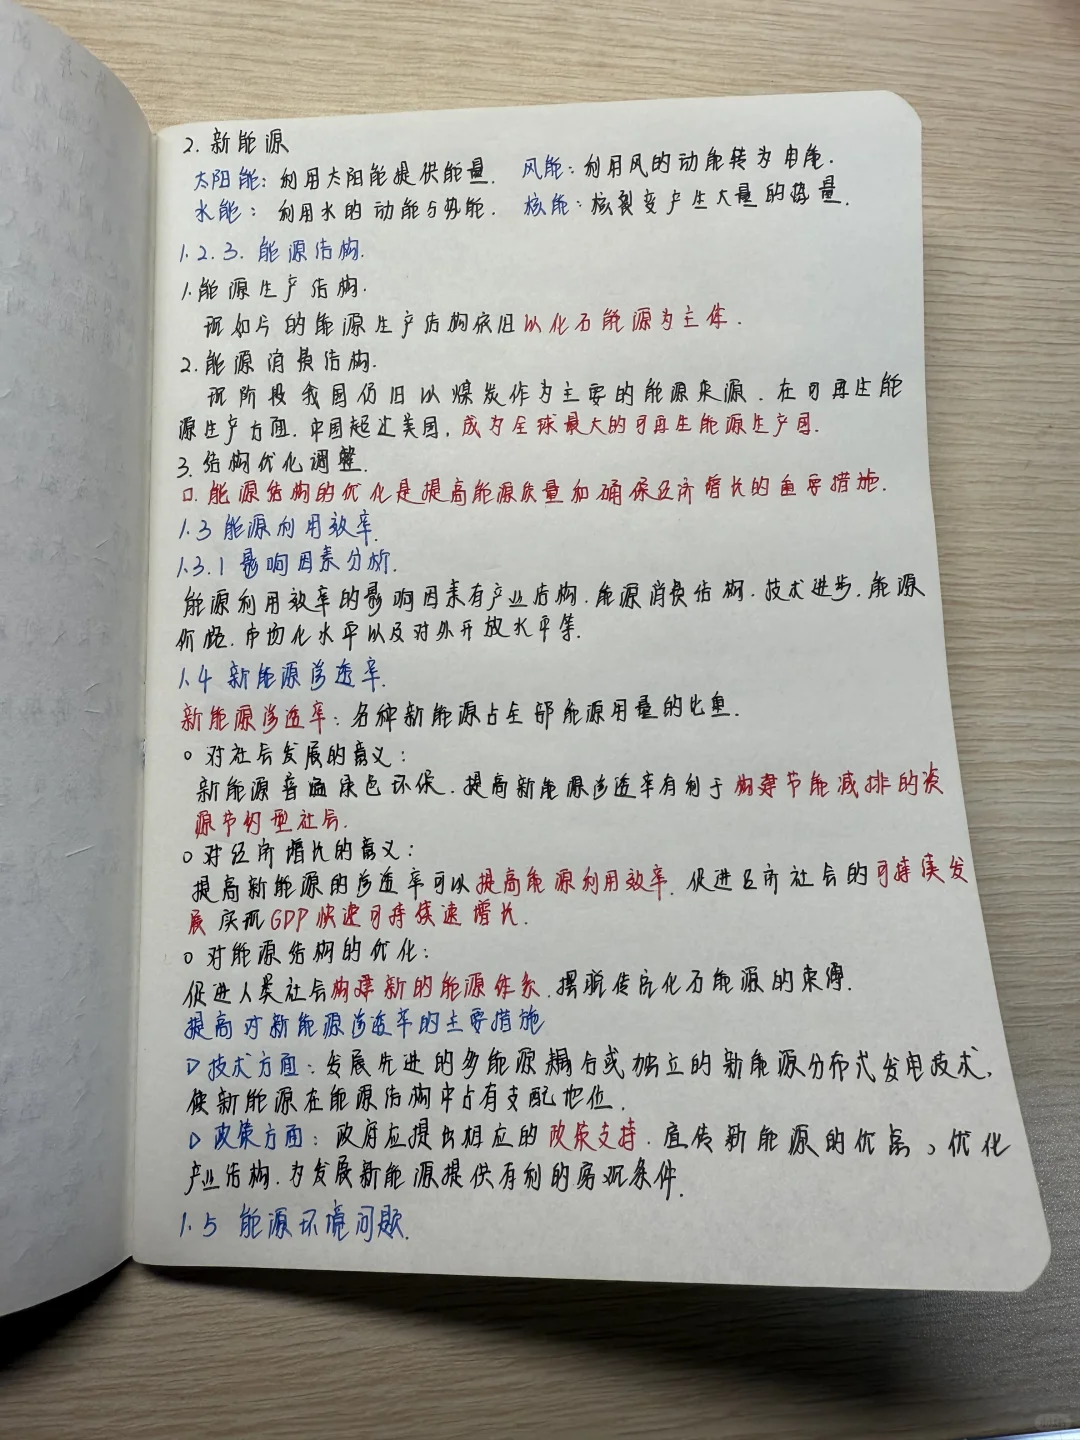 2. 新能源
太阳能: 利用太阳能提供能量. 风能: 利用风的动能转为电能.
水能: 利用水的动能与势能. 核能: 核裂变产生大量的热量.
1.2.3. 能源结构.
1.能源生产结构.
现如今的能源生产结构依旧以化石能源为主体.
2.能源消费结构.
现阶段我国仍旧以煤炭作为主要的能源来源. 在可再生能
源生产方面. 中国超过美国, 成为全球最大的可再生能源生产国.
3. 结构优化调整.
□. 能源结构的优化是提高能源质量和确保经济增长的重要措施.
1.3 能源利用效率.
1.3.1 影响因素分析.
能源利用效率的影响因素有产业结构. 能源消费结构. 技术进步. 能源
价格. 市场化水平以及对外开放水平等.
1.4 新能源渗透率.
新能源渗透率: 各种新能源占全部能源用量的比重.
○ 对社会发展的意义:
新能源普遍绿色环保. 提高新能源渗透率有利于构建节能减排的资
源节约型社会.
○ 对经济增长的意义:
提高新能源的渗透率可以提高能源利用效率. 促进经济社会的可持续发
展 实现GDP快速可持续增长.
○ 对能源结构的优化:
促进人类社会构建新的能源体系. 摆脱传统化石能源的束缚.
提高对新能源渗透率的主要措施
▷ 技术方面: 发展先进的多能源耦合或独立的新能源分布式发电技术,
使新能源在能源结构中占有支配地位.
▷ 政策方面: 政府应提出相应的政策支持. 宣传新能源的优点, 优化
产业结构. 为发展新能源提供有利的客观条件.
1.5 能源环境问题.